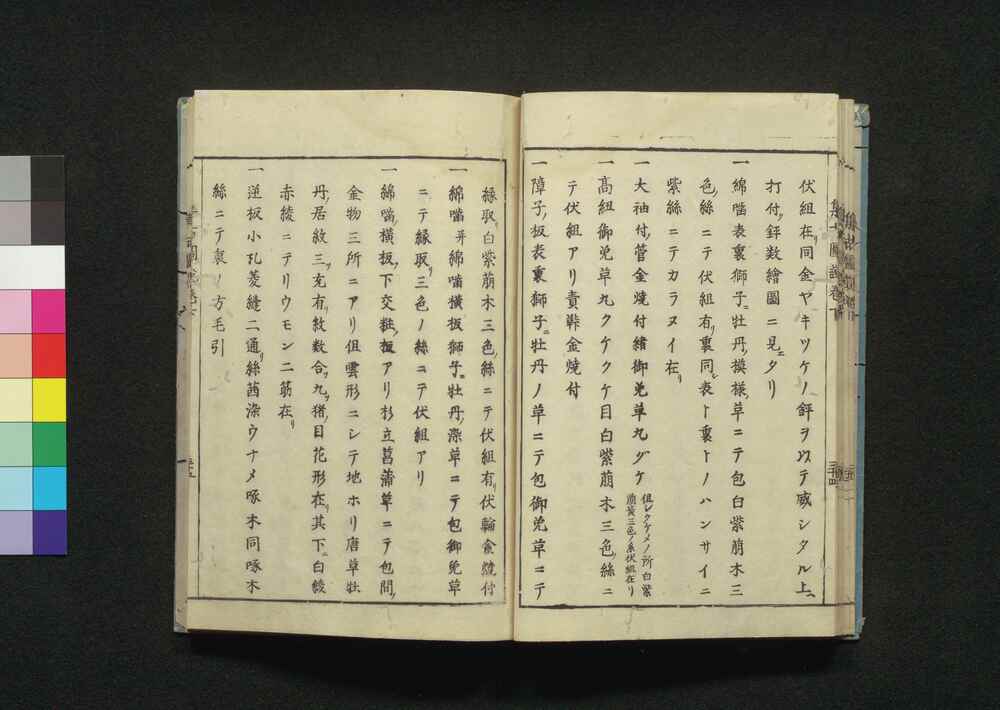 伏組在リ同金ヤキツケノ鋲ヲ以テ威シタル上ヘ
打付ク鋲数繪圖ニ見ヘタリ
一綿噛表裏獅子ニ牡丹ノ模様ノ草ニテ包白紫萠木三
色ノ絲ニテ伏組有リ裏同シ表ト裏トノハンサイニ
紫絲ニテカラヌイ在リ
一大袖付ノ菅金焼付緒御免草丸グケ
但シクケメノ所白紫
萠黄三色ノ糸伏組在リ
一高紐御免草丸クケクケ目白紫萠木三色ノ絲ニ
テ伏組アリ責鞐金焼付
一障子ノ板表裏獅子ニ牡丹ノ草ニテ包御免草ニテ
縁取リ白紫萠木三色ノ絲ニテ伏組有リ伏輪金焼付
一綿噛并綿噛横板獅子ニ牡丹ノ染草ニテ包御免草
ニテ縁取リ三色ノ絲ニテ伏組アリ
一綿噛ノ横板ノ下交粧板アリ杉立菖蒲草ニテ包間ノ
金物三所ニアリ但雲形ニシテ地ホリ唐草牡
丹ノ居紋三ツ充有リ紋数合九ツ猪ノ目花形在リ其下ニ白綾
赤綾ニテリウモン二筋在リ
一逆板小孔菱縫二通リ絲茜染ウナメ啄木同啄木
絲ニテ裏ノ方毛引